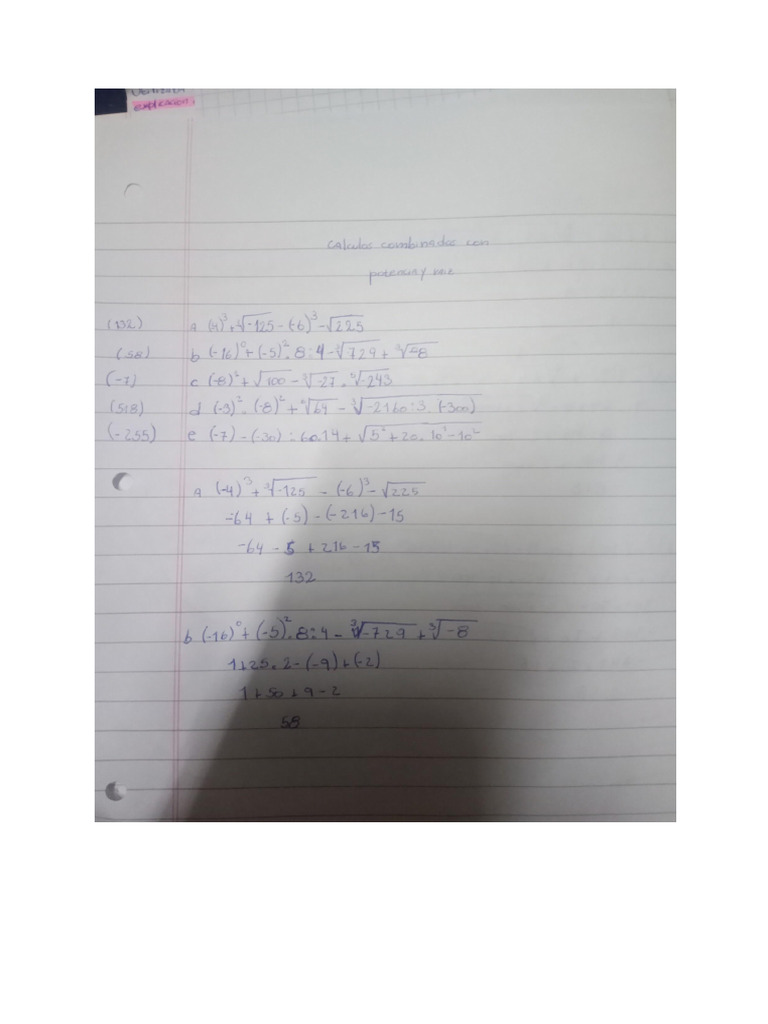 explicacion.
Calculos combinados con
potencia y raiz
(132) a (4)³ + ³√-125 - (-6)³ - √225
(58) b (-16)⁰ + (-5)² . 8 : 4 - ³√729 + ³√-8
(-7) c (-8)² + √100 - ³√-27 . ⁵√-243
(518) d (-3)² . (-8)² + ⁶√64 - ³√-2160 : 3 . (-300)
(-255) e (-7) - (-30) : 60.14 + √5² + 20 . 10¹ - 10²
a (-4)³ + ³√-125 - (-6)³ - √225
-64 + (-5) - (-216) - 15
-64 - 5 + 216 - 15
132
b (-16)⁰ + (-5)² . 8 : 4 - ³√-729 + ³√-8
1 + 25 . 2 - (-9) + (-2)
1 + 50 + 9 - 2
58